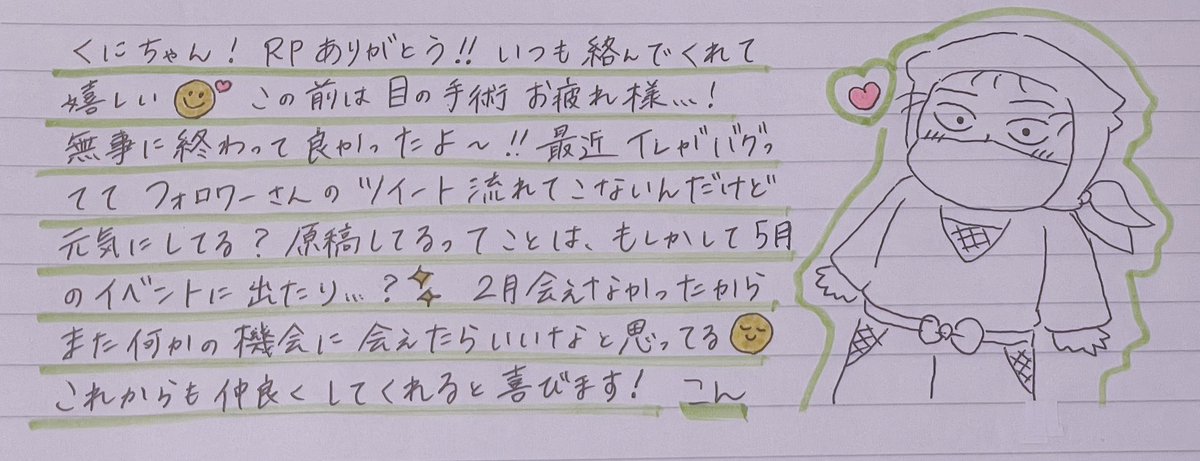 くにちゃん! RPありがとう!! いつも絡んでくれて
嬉しい この前は目の手術お疲れ様…!
無事に終わって良かったよ～!! 最近イレがバグっ
ててフォロワーさんのツイート流れてこないんだけど
元気にしてる? 原稿してるってことは、もしかして5月
のイベントに出たり…? 2月会えなかったから
また何かの機会に会えたらいいなと思ってる
これからも仲良くしてくれると喜びます! こん